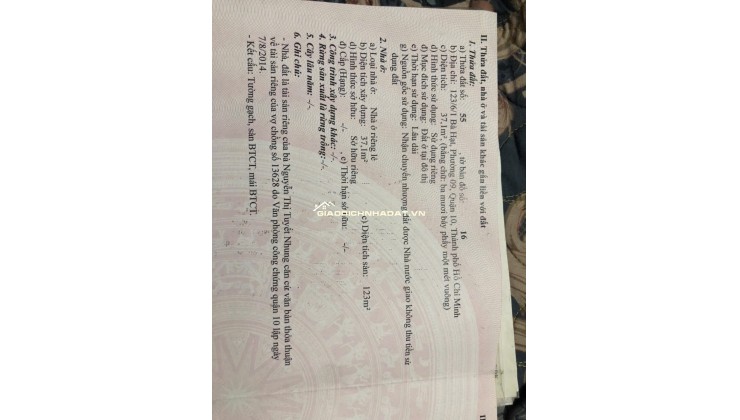 II. Thửa đất, nhà ở và tài sản khác gắn liền với đất
1. Thửa đất:
a) Thửa đất số: 55 , tờ bản đồ số: 16
b) Địa chỉ: 123/6/1 Bà Hạt, Phường 09, Quận 10, Thành phố Hồ Chí Minh
c) Diện tích: 37,1m², (bằng chữ: ba mươi bảy phẩy một mét vuông)
d) Hình thức sử dụng: Sử dụng riêng
đ) Mục đích sử dụng: Đất ở tại đô thị
e) Thời hạn sử dụng: Lâu dài
g) Nguồn gốc sử dụng: Nhận chuyển nhượng đất được Nhà nước giao không thu tiền sử
dụng đất
2. Nhà ở:
a) Loại nhà ở: Nhà ở riêng lẻ
b) Diện tích xây dựng: 37,1m² c) Diện tích sàn: 123m²
d) Hình thức sở hữu: Sở hữu riêng
đ) Cấp (Hạng): -/- , e) Thời hạn sở hữu: -/-
3. Công trình xây dựng khác: -/-
4. Rừng sản xuất là rừng trồng: -/-
5. Cây lâu năm: -/-
6. Ghi chú:
- Nhà, đất là tài sản riêng của bà Nguyễn Thị Tuyết Nhung căn cứ văn bản thỏa thuận
về tài sản riêng của vợ chồng số 13628 do Văn phòng công chứng quận 10 lập ngày
7/8/2014.
- Kết cấu: Tường gạch, sàn BTCT, mái BTCT.
GIAODICHNHADAT.VN